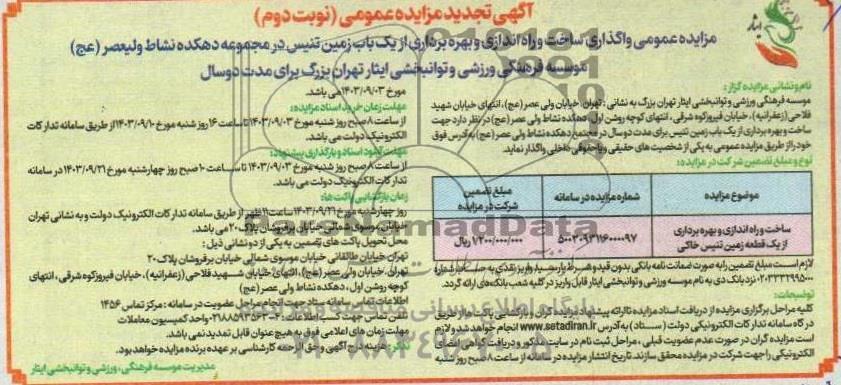 آگهی تجدید مزایده عمومی (نوبت دوم)
مزایده عمومی واگذاری ساخت و راه اندازی و بهره برداری از یک باب زمین تنیس در مجموعه دهکده نشاط ولیعصر (عج)
موسسه فرهنگی ورزشی و توانبخشی ایثار تهران بزرگ برای مدت دوسال
ایثار
نام و نشانی مزایده گزار:
موسسه فرهنگی ورزشی و توانبخشی ایثار تهران بزرگ به نشانی: تهران، خیابان ولی عصر (عج)، انتهای خیابان شهید
فلاحی (زعفرانیه)، خیابان فیروزکوه شرقی، انتهای کوچه روشن اول، دهکده نشاط ولی عصر (عج) در نظر دارد جهت
ساخت و بهره برداری از یک باب زمین تنیس برای مدت دو سال در مجتمع دهکده نشاط ولی عصر (عج) به آدرس فوق
خود را از طریق مزایده عمومی به یکی از شخصیت های حقیقی و یا حقوقی داخلی واگذار نماید.
نوع و مبلغ تضمین شرکت در مزایده:
موضوع مزایده
شماره مزایده در سامانه
مبلغ تضمین شرکت در مزایده
ساخت و راه اندازی و بهره برداری از یک قطعه زمین تنیس خاکی
5003093116000097
1/200/000/000 ریال
لازم است مبلغ تضمین را به صورت ضمانت نامه بانکی بدون قید و شرط یا رسید واریز نقدی به حساب شماره
0203332995000 نزد بانک دی به نام موسسه ورزشی و توانبخشی ایثار قابل واریز در کلیه شعب بانک های ارائه گردد.
توضیحات:
کلیه مراحل برگزاری مزایده از دریافت اسناد مزایده تا ارائه پیشنهاد مزایده گران و بازگشایی پاکت ها از طریق
درگاه سامانه تدارکات الکترونیکی دولت (ستاد) به آدرس www.setadiran.ir انجام خواهد شد و لازم
است مزایده گران در صورت عدم عضویت قبلی، مراحل ثبت نام در سایت مذکور و دریافت گواهی امضای
الکترونیکی را جهت شرکت در مزایده محقق سازند. تاریخ انتشار مزایده در سامانه از ساعت 8 صبح روز شنبه
مورخ 1403/09/03 می باشد.
مهلت زمان خرید اسناد مزایده:
از ساعت 8 صبح روز شنبه مورخ 1403/09/03 تا ساعت 16 روز شنبه مورخ 1403/09/10 از طریق سامانه تدارکات
الکترونیک دولت می باشد.
مهلت عودت اسناد و بارگذاری پیشنهاد:
از ساعت 8 صبح روز شنبه مورخ 1403/09/03 تا ساعت 10 صبح روز چهارشنبه مورخ 1403/09/21 در سامانه
تدارکات الکترونیک دولت می باشد.
زمان بازگشایی پاکت ها:
روز چهارشنبه مورخ 1403/09/21 ساعت 11 ظهر از طریق سامانه تدارکات الکترونیک دولت و به نشانی تهران
خیابان موسوی شمالی خیابان برفروشان پلاک 20 می باشد.
محل تحویل پاکت های تضمین به یکی از دو نشانی ذیل:
تهران خیابان طالقانی خیابان موسوی شمالی خیابان برفروشان پلاک 20
تهران، خیابان ولی عصر (عج)، انتهای خیابان شهید فلاحی (زعفرانیه)، خیابان فیروزکوه شرقی، انتهای
کوچه روشن اول، دهکده نشاط ولی عصر (عج)
اطلاعات تماس سامانه ستاد جهت انجام مراحل عضویت در سامانه: مرکز تماس 1456
تلفن تماس جهت کسب اطلاعات: 02188593563-4 واحد کمیسیون معاملات
مهلت زمان های اعلامی فوق به هیچ عنوان قابل تمدید نمی باشد.
تذکر: هزینه درج آگهی و حق الزحمه کارشناسی بر عهده برنده مزایده خواهد بود.
مدیریت موسسه فرهنگی، ورزشی و توانبخشی ایثار
ParsNamadData